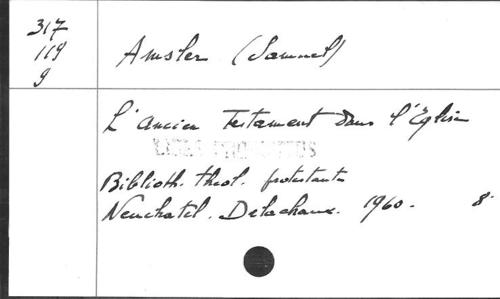 317
119
9
Amsler (Samuel)
L'ancien Testament dans l'Eglise
Biblioth. théol. protestante
Neuchatel. Delachaux. 1960. 8°